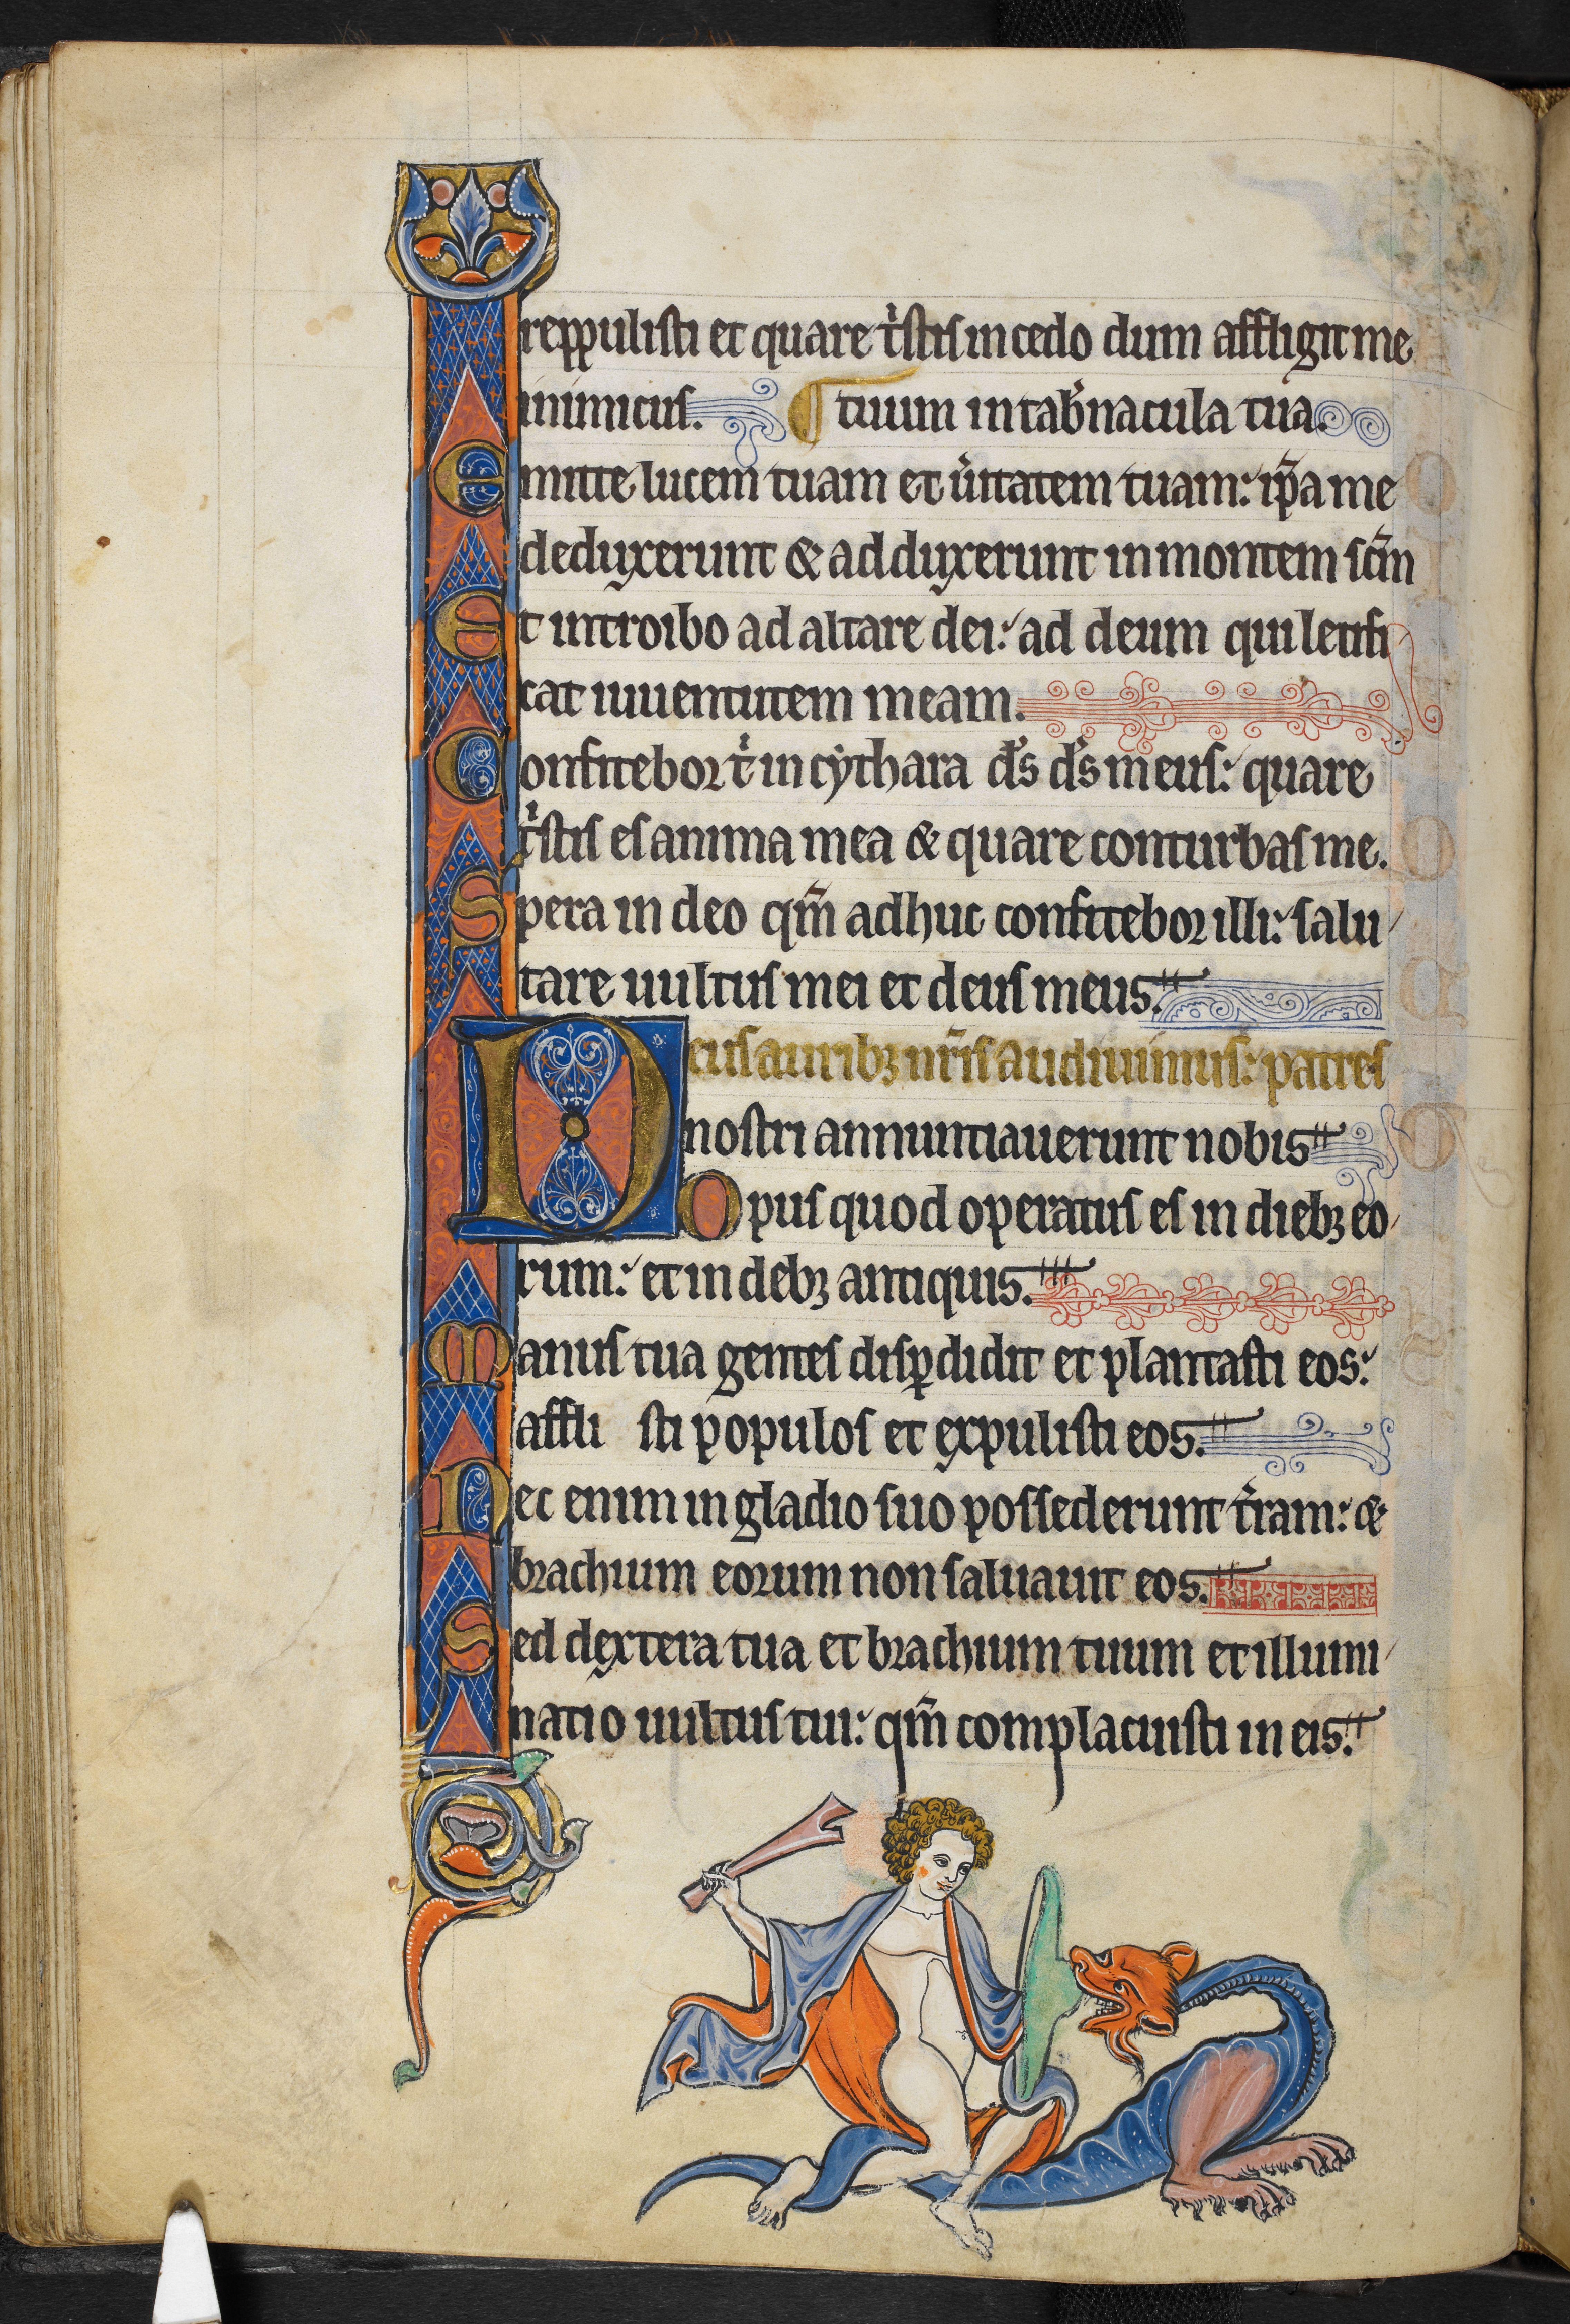 reppulisti et quare t'stis incedo dum affligit me
inimicus. ¶ tuum in tab'nacula tua.
Emitte lucem tuam et u'itatem tuam: ip̄a me
deduxerunt & adduxerunt in montem sc̄m
Et introibo ad altare dei: ad deum qui letifi
cat iuuentutem meam.
Confitebor t' in cythara d's d's meus: quare
t'stis es anima mea & quare conturbas me.
Spera in deo qm̄ adhuc confitebor illi: salu
tare uultus mei et deus meus.
Deus auribꝫ nr̄is audiuimus: patres
nostri annuntiauerunt nobis
Opus quod operatus es in diebꝫ eo
rum: et in debꝫ antiquis.
Manus tua gentes disꝑdidit et plantasti eos:
affli sti populos et expulisti eos.
Nec enim in gladio suo possederunt t'ram: &
brachium eorum non saluauit eos.
Sed dextera tua et brachium tuum et illumi
natio uultus tui: qm̄ complacuisti in eis.